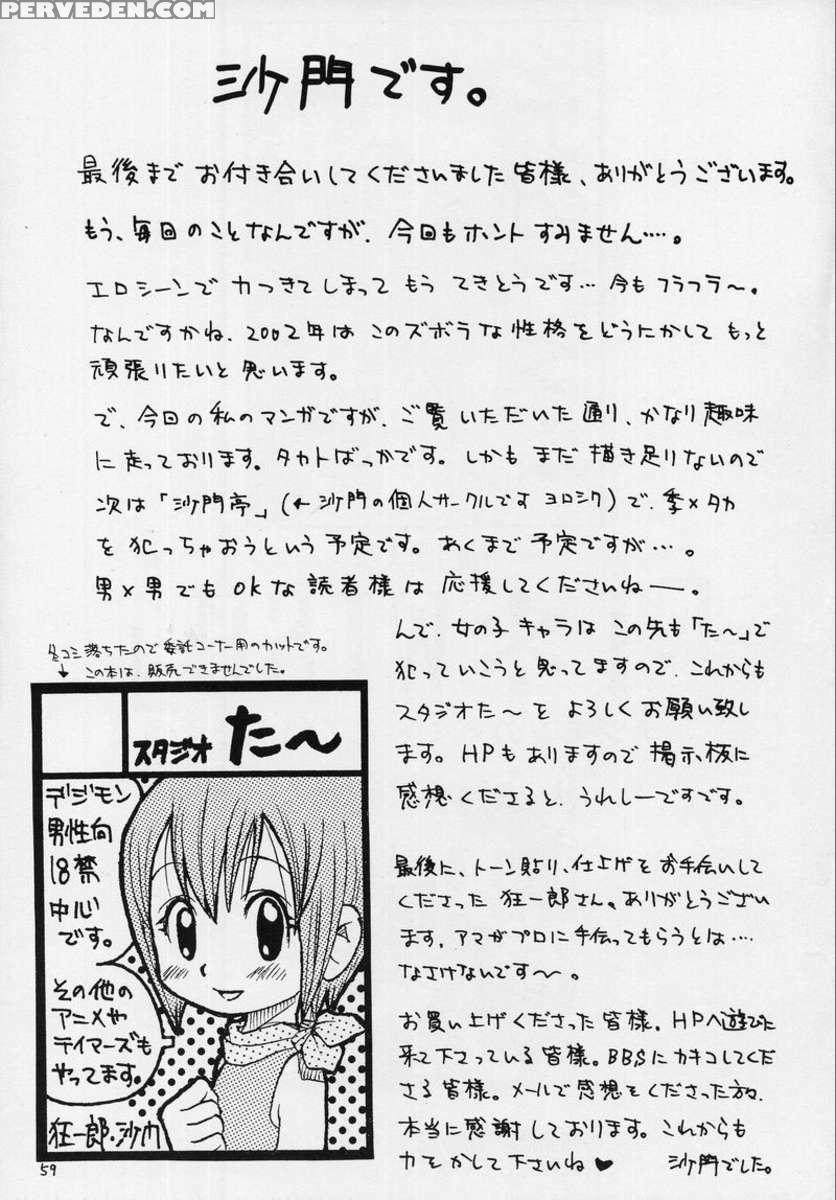 PERVEDEN.COM
沙門です。
最後まで お付き合いしてくださいました皆様、ありがとうございます。
もう、毎回のことなんですが、今回もホント すみません……。
エロシーンで 力つきてしまって もう てきとうです… 今もフラフラ〜。
なんですかね、2002年は このズボラな性格をどうにかして もっと
頑張りたいと思います。
で、今回の私のマンガですが、ご覧いただいた通り、かなり趣味
に走っております。タカトばっかです。しかもまだ描き足りないので
次は「沙門亭」(←沙門の個人サークルです ヨロシク)で、季×タカ
を犯っちゃおうという予定です。あくまで予定ですが…。
男×男でもOKな読者様は 応援してくださいねー。
んで、女の子キャラは この先も「た〜」で
犯っていこうと思ってますので、これからも
スタジオた〜を よろしくお願い致し
ます。HPもありますので 掲示板に
感想くださると、うれしーですです。
冬コミ落ちたので委託コーナー用のカットです。
↓この本は、販売できませんでした。
スタジオ た〜
デジモン
男性向
18禁
中心
です。
その他の
アニメや
テイマーズも
やってます。
狂一郎・沙門
最後に、トーン貼り、仕上げをお手伝いして
くださった 狂一郎さん。ありがとうござい
ます。アマがプロに手伝ってもらうとは…
なさけないです〜。
お買い上げくださった皆様。HPへ遊びに
来て下さっている皆様。BBSにカキコしてくだ
さる皆様。メールで感想をくださった方々、
本当に感謝しております。これからも
力をかして下さいね♥ 沙門でした。
59